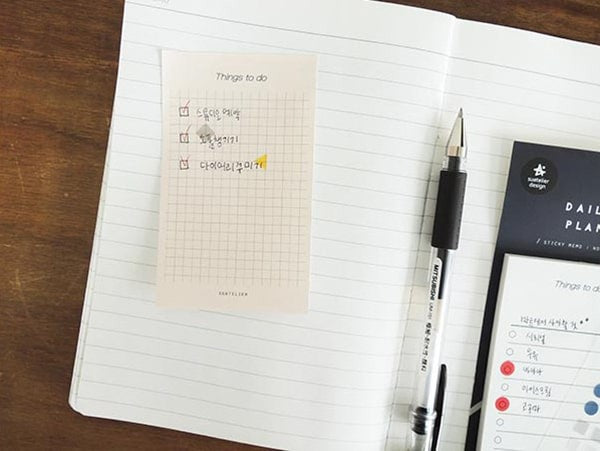 Things to do
스튜디오 예약
소품 챙기기
다이어리 꾸미기
SUATELIER
MITSUBISHI
suatelier
design
DAIL
PLAN
/ STICKY MEMO : NO
Things to do
시리얼
우유
바나나
아이스크림